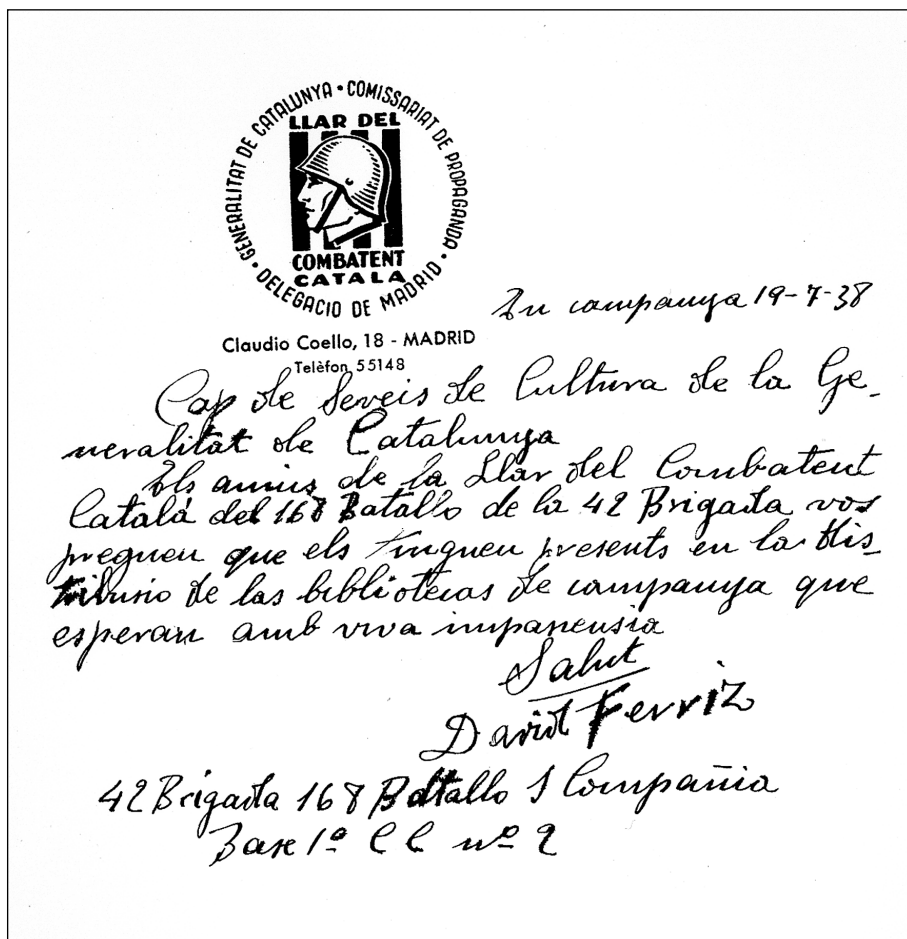 GENERALITAT DE CATALUNYA · COMISSARIAT DE PROPAGANDA · DELEGACIO DE MADRID ·
LLAR DEL
COMBATENT
CATALA
Claudio Coello, 18 - MADRID
Telèfon 55148
En campanya 19-7-38
Cap de Serveis de Cultura de la Ge-
neralitat de Catalunya
Els amics de la Llar del Combatent
Catalá del 168 Batallo de la 42 Brigada vos
pregueu que els tingueu presents en la dis-
tribusio de las bibliotecas de campanya que
esperan amb viva impanensia
Salut
David Ferriz
42 Brigada 168 Batallo 1 Compañia
Base 1ª C C nº 2